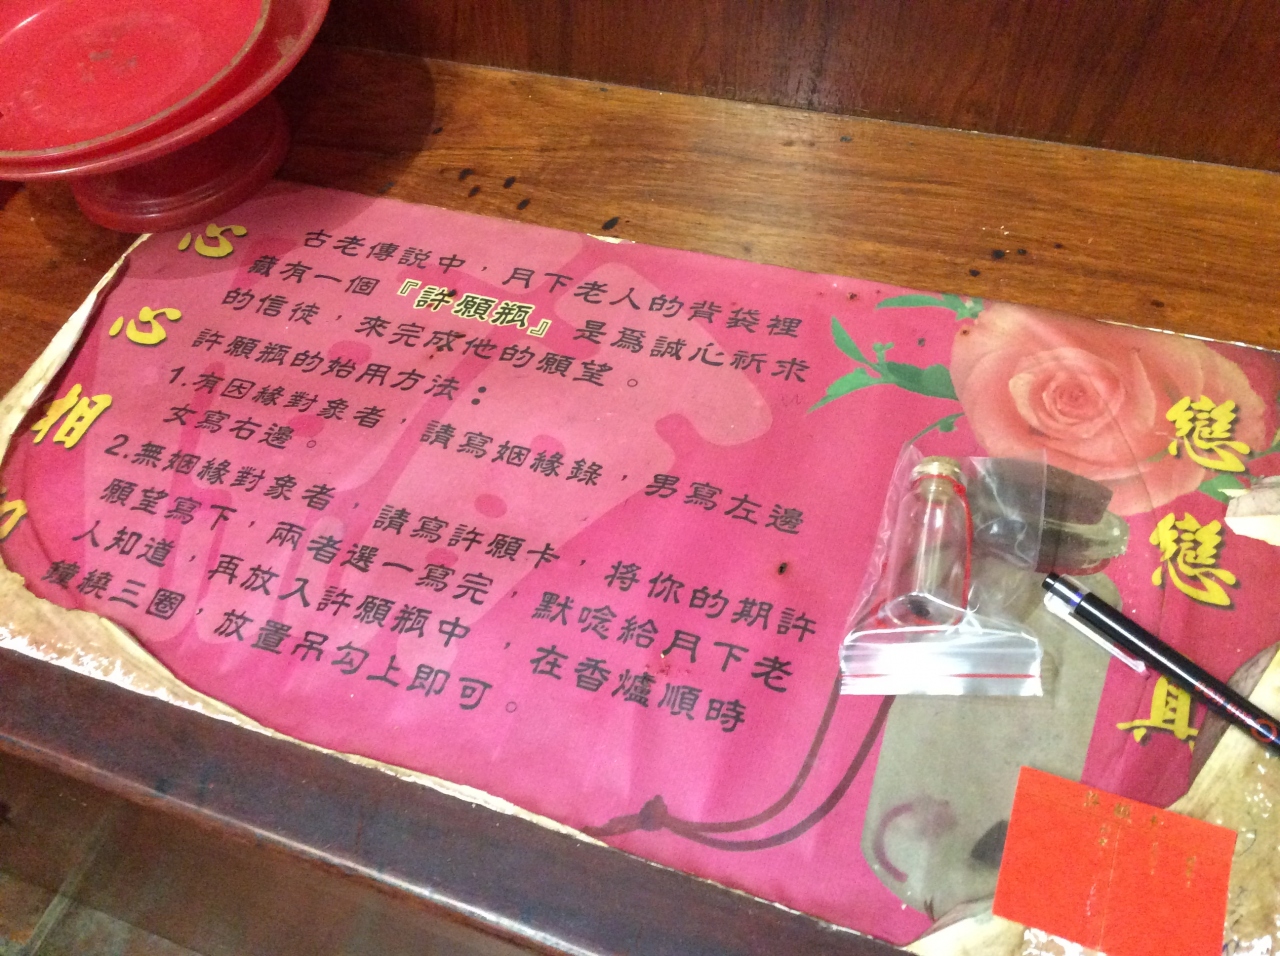 古老傳説中，月下老人的背袋裡
藏有一個『許願瓶』是爲誠心祈求
的信徒，來完成他的願望。
許願瓶的始用方法：
1.有因緣對象者，請寫姻緣錄，男寫左邊
女寫右邊。
2.無姻緣對象者，請寫許願卡，將你的期許
願望寫下，兩者選一寫完，默唸給月下老
人知道，再放入許願瓶中，在香爐順時
鐘繞三圈，放置吊勾上即可。
心心相
戀戀真